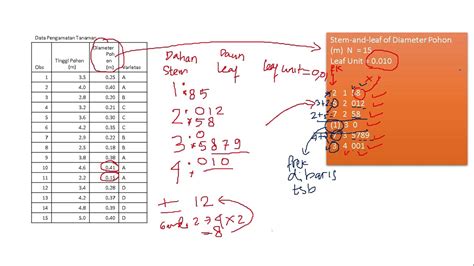 Data Pengamatan Tanaman
Obs Tinggi Pohon (m) Diameter Pohon (m) Varietas
1 3.5 0.25 A
2 4.0 0.40 A
3 3.2 0.20 B
4 3.3 0.21 C
5 3.6 0.30 C
6 3.2 0.35 C
7 2.9 0.22 B
8 2.5 0.18 B
9 3.8 0.38 A
10 4.6 0.41 A
11 2.2 0.15 A
12 3.4 0.28 D
13 4.2 0.37 D
14 4.8 0.39 D
15 5.0 0.40 D
Dahan Daun
Stem Leaf Leaf unit = 0,01
1 : 85
2 : 012
2 : 58
3 : 0
3 : 5879
4 : 010
12
2 → 4 × 2
= 8
Stem-and-leaf of Diameter Pohon
(m) N = 15
Leaf Unit 0,010
2 1 58
2 012
7 2 58
(1) 3 0
3 5789
4 001
frek
dibaris
tsb